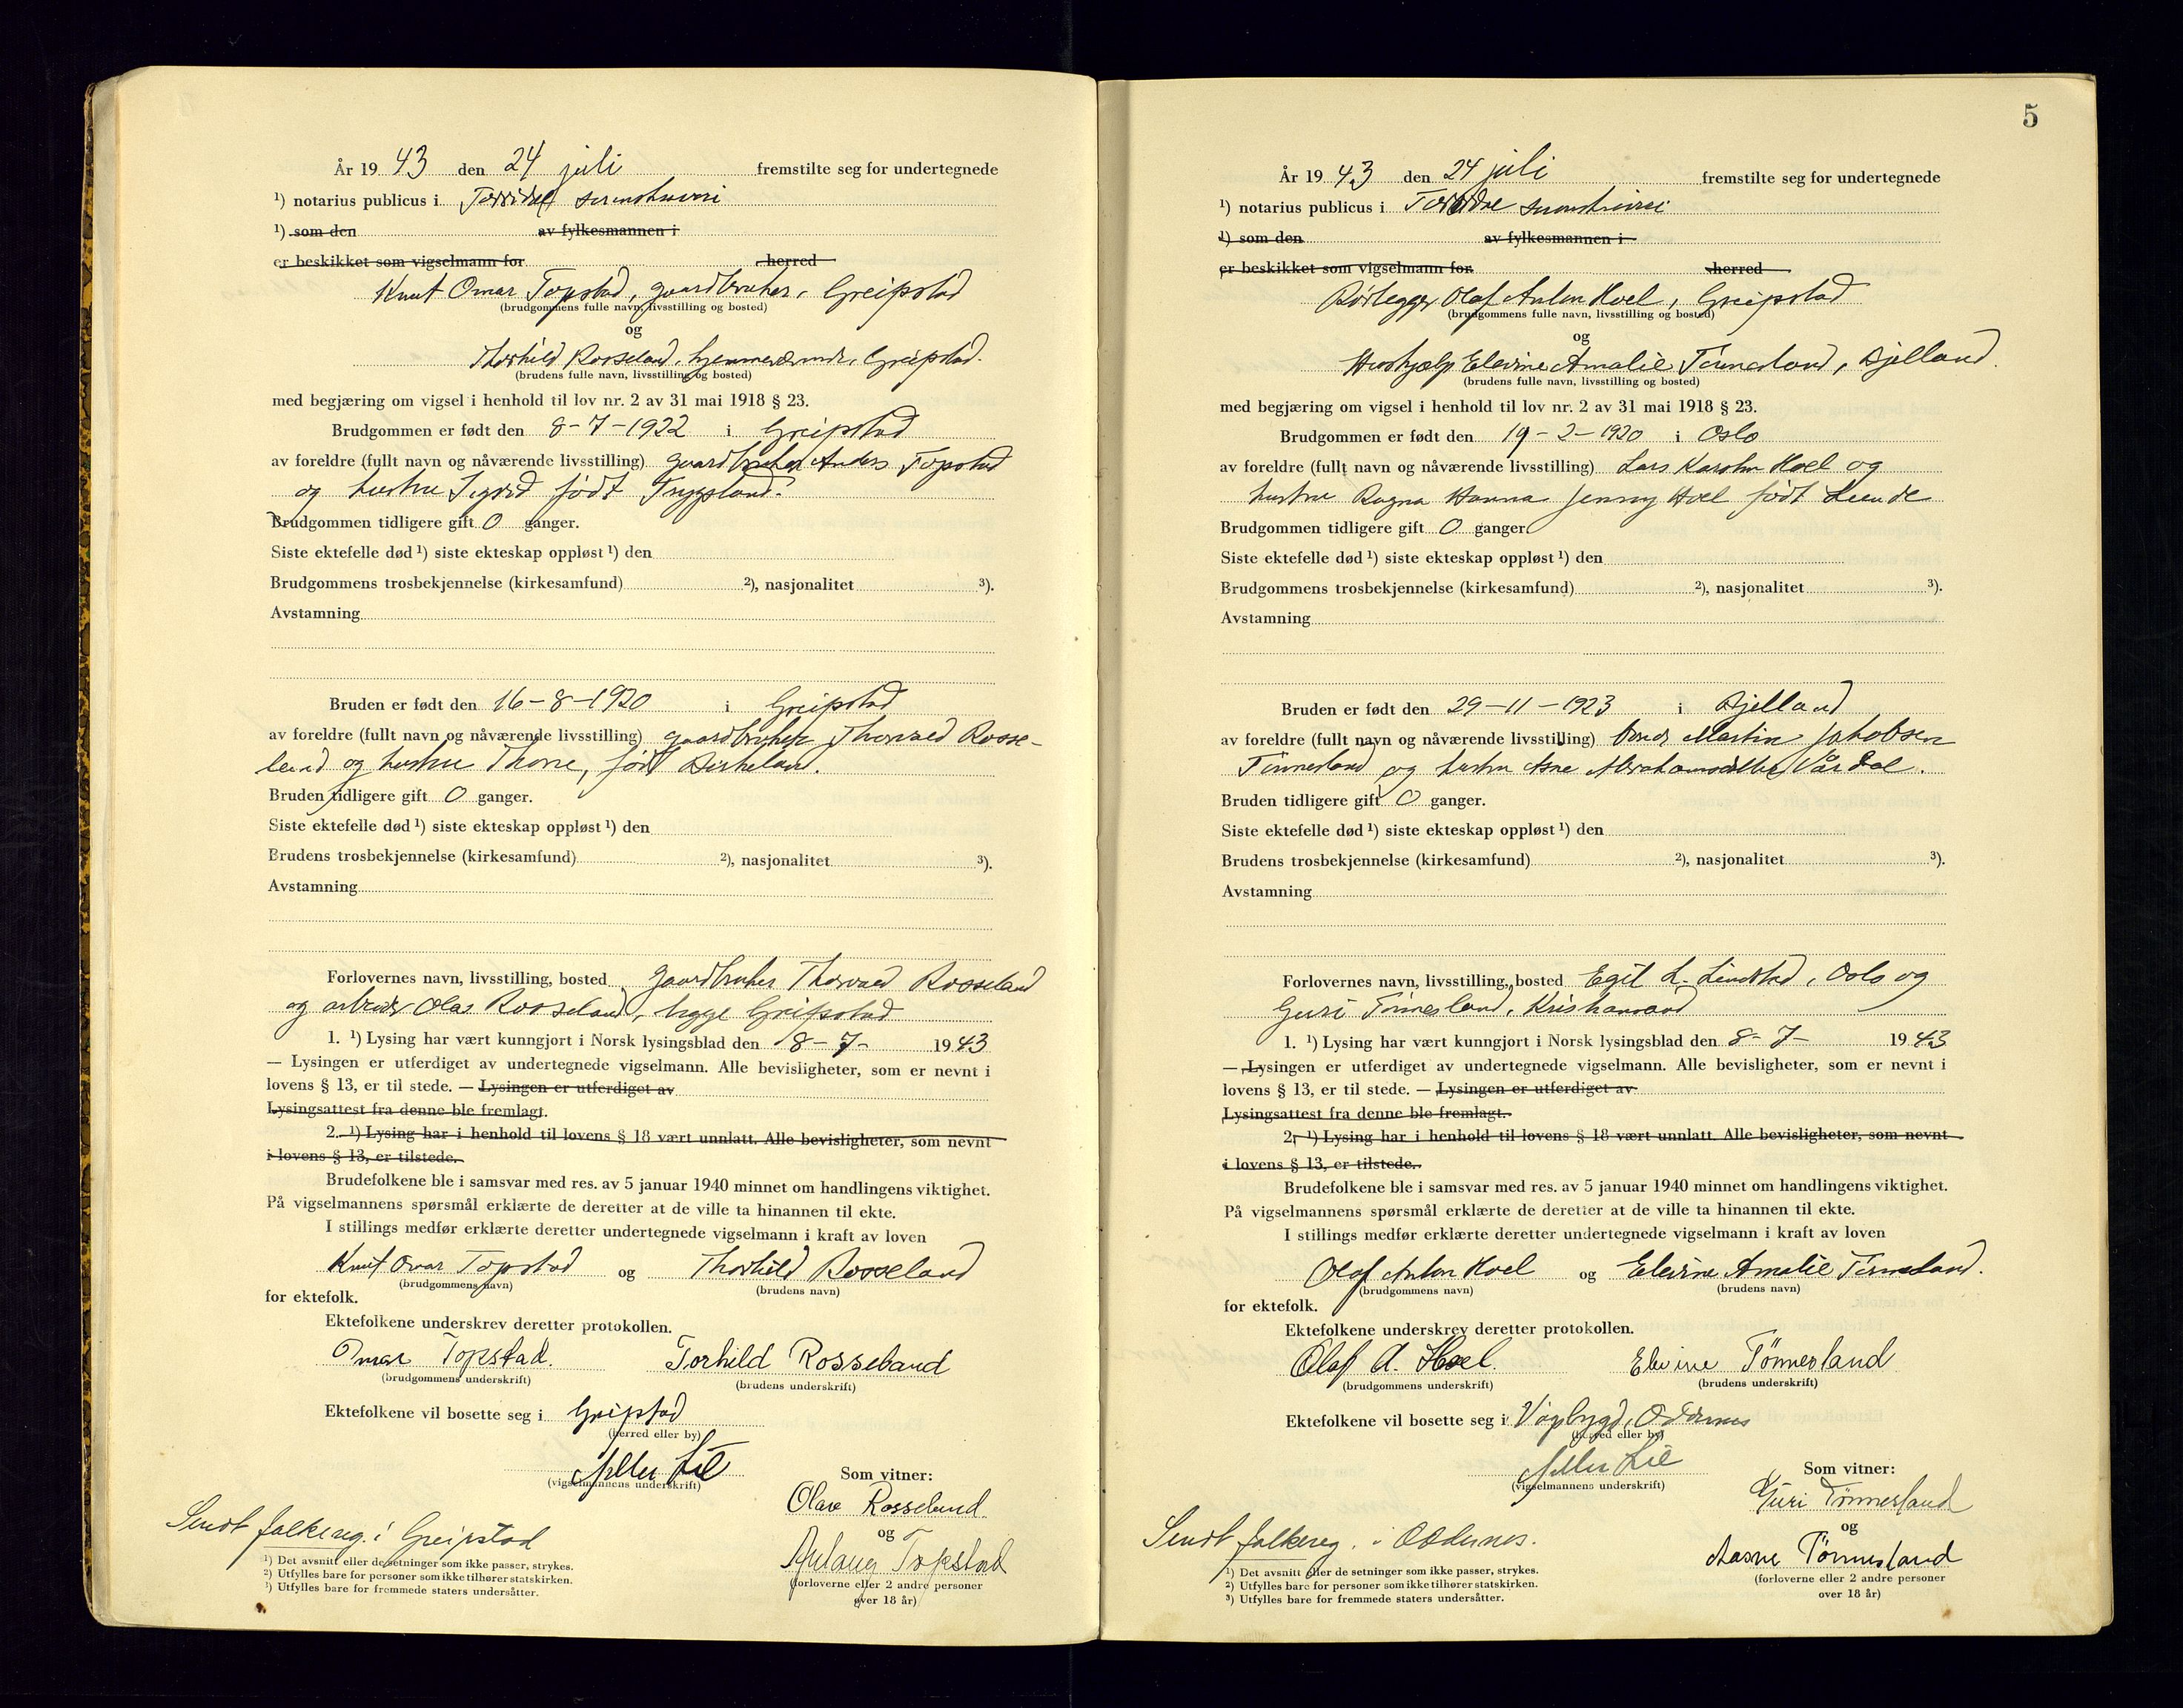 År 19 43 den 24 juli fremstilte seg for undertegnede
¹) notarius publicus i Torridal
¹) som den av fylkesmannen i
er beskikket som vigselmann for herred
Knut Omar Topstad, gaardbruker, Greipstad
(brudgommens fulle navn, livsstilling og bosted)
og
Thorhild Rosseland, hjemmeværende, Greipstad.
(brudens fulle navn, livsstilling og bosted)
med begjæring om vigsel i henhold til lov nr. 2 av 31 mai 1918 § 23.
Brudgommen er født den 8-7-1922 i Greipstad
av foreldre (fullt navn og nåværende livsstilling) gaardbruker Anders Topstad
og hustru Sigrid født Trygsland.
Brudgommen tidligere gift 0 ganger.
Siste ektefelle død ¹) siste ekteskap oppløst ¹) den
Brudgommens trosbekjennelse (kirkesamfund) ²), nasjonalitet ³).
Avstamning
Bruden er født den 16-8-1920 i Greipstad
av foreldre (fullt navn og nåværende livsstilling) gaardbruker Thorvald Rosse-
land og hustru Thone, født Birkeland.
Bruden tidligere gift 0 ganger.
Siste ektefelle død ¹) siste ekteskap oppløst ¹) den
Brudens trosbekjennelse (kirkesamfund) ²), nasjonalitet ³).
Avstamning
Forlovernes navn, livsstilling, bosted gaardbruker Thorvald Rosseland
og arbeider Olav Rosseland, begge Greipstad
1. ¹) Lysing har vært kunngjort i Norsk lysingsblad den 8-7- 19 43
— Lysingen er utferdiget av undertegnede vigselmann. Alle bevisligheter, som er nevnt i
lovens § 13, er til stede. — Lysingen er utferdiget av
Lysingsattest fra denne ble fremlagt.
2. ¹) Lysing har i henhold til lovens § 18 vært unnlatt. Alle bevisligheter, som nevnt
i lovens § 13, er tilstede.
Brudefolkene ble i samsvar med res. av 5 januar 1940 minnet om handlingens viktighet.
På vigselmannens spørsmål erklærte de deretter at de ville ta hinannen til ekte.
I stillings medfør erklærte deretter undertegnede vigselmann i kraft av loven
Knut Omar Topstad og Thorhild Rosseland
(brudgommens navn) (brudens navn)
for ektefolk.
Ektefolkene underskrev deretter protokollen.
Omar Topstad. Torhild Rosseland
(brudgommens underskrift) (brudens underskrift)
Ektefolkene vil bosette seg i Greipstad
(herred eller by)
(vigselmannens underskrift)
Som vitner:
Olav Rosseland.
og
Aslaug Topstad
(forloverne eller 2 andre personer
over 18 år)
Sendt folkereg. i Greipstad
¹) Det avsnitt eller de setninger som ikke passer, strykes.
²) Utfylles bare for personer som ikke tilhører statskirken.
³) Utfylles bare for fremmede staters undersåtter.
5
År 19 43 den 24 juli fremstilte seg for undertegnede
¹) notarius publicus i
¹) som den av fylkesmannen i
er beskikket som vigselmann for herred
Rørlegger Olaf Anton Hoel, Greipstad
(brudgommens fulle navn, livsstilling og bosted)
og
Hushjælp Elevine Amalie Tønnesland, Bjelland.
(brudens fulle navn, livsstilling og bosted)
med begjæring om vigsel i henhold til lov nr. 2 av 31 mai 1918 § 23.
Brudgommen er født den 19-2-1920 i Oslo
av foreldre (fullt navn og nåværende livsstilling) Lars Hoel og
hustru Ragna Hanna Jenny Hoel født
Brudgommen tidligere gift 0 ganger
Siste ektefelle død ¹) siste ekteskap oppløst ¹) den
Brudgommens trosbekjennelse (kirkesamfund) ²), nasjonalitet ³).
Avstamning
Bruden er født den 29-11-1923 i Bjelland
av foreldre (fullt navn og nåværende livsstilling) bonde Martin Jakobsen
Tønnesland og hustru Asne Abrahamsdatter Vårdal.
Bruden tidligere gift 0 ganger.
Siste ektefelle død ¹) siste ekteskap oppløst ¹) den
Brudens trosbekjennelse (kirkesamfund) ²), nasjonalitet ³).
Avstamning
Forlovernes navn, livsstilling, bosted Egil L. Lindstad, Oslo og
Guri Tønnesland, Kristiansand
1. ¹) Lysing har vært kunngjort i Norsk lysingsblad den 8-7- 19 43
— Lysingen er utferdiget av undertegnede vigselmann. Alle bevisligheter, som er nevnt i
lovens § 13, er til stede. — Lysingen er utferdiget av
Lysingsattest fra denne ble fremlagt.
2. ¹) Lysing har i henhold til lovens § 18 vært unnlatt. Alle bevisligheter, som nevnt
i lovens § 13, er tilstede.
Brudefolkene ble i samsvar med res. av 5 januar 1940 minnet om handlingens viktighet.
På vigselmannens spørsmål erklærte de deretter at de ville ta hinannen til ekte.
I stillings medfør erklærte deretter undertegnede vigselmann i kraft av loven
Olaf Anton Hoel og Elevine Amalie Tønnesland.
(brudgommens navn) (brudens navn)
for ektefolk.
Ektefolkene underskrev deretter protokollen.
Olaf A. Hoel. Elevine Tønnesland
(brudgommens underskrift) (brudens underskrift)
Ektefolkene vil bosette seg i Vågsbygd, Oddernes
(herred eller by)
(vigselmannens underskrift)
Som vitner:
Guri Tønnesland
og
Aasne Tønnesland
(forloverne eller 2 andre personer
over 18 år)
Sendt folkereg. i Oddernes.
¹) Det avsnitt eller de setninger som ikke passer, strykes.
²) Utfylles bare for personer som ikke tilhører statskirken.
³) Utfylles bare for fremmede staters undersåtter.